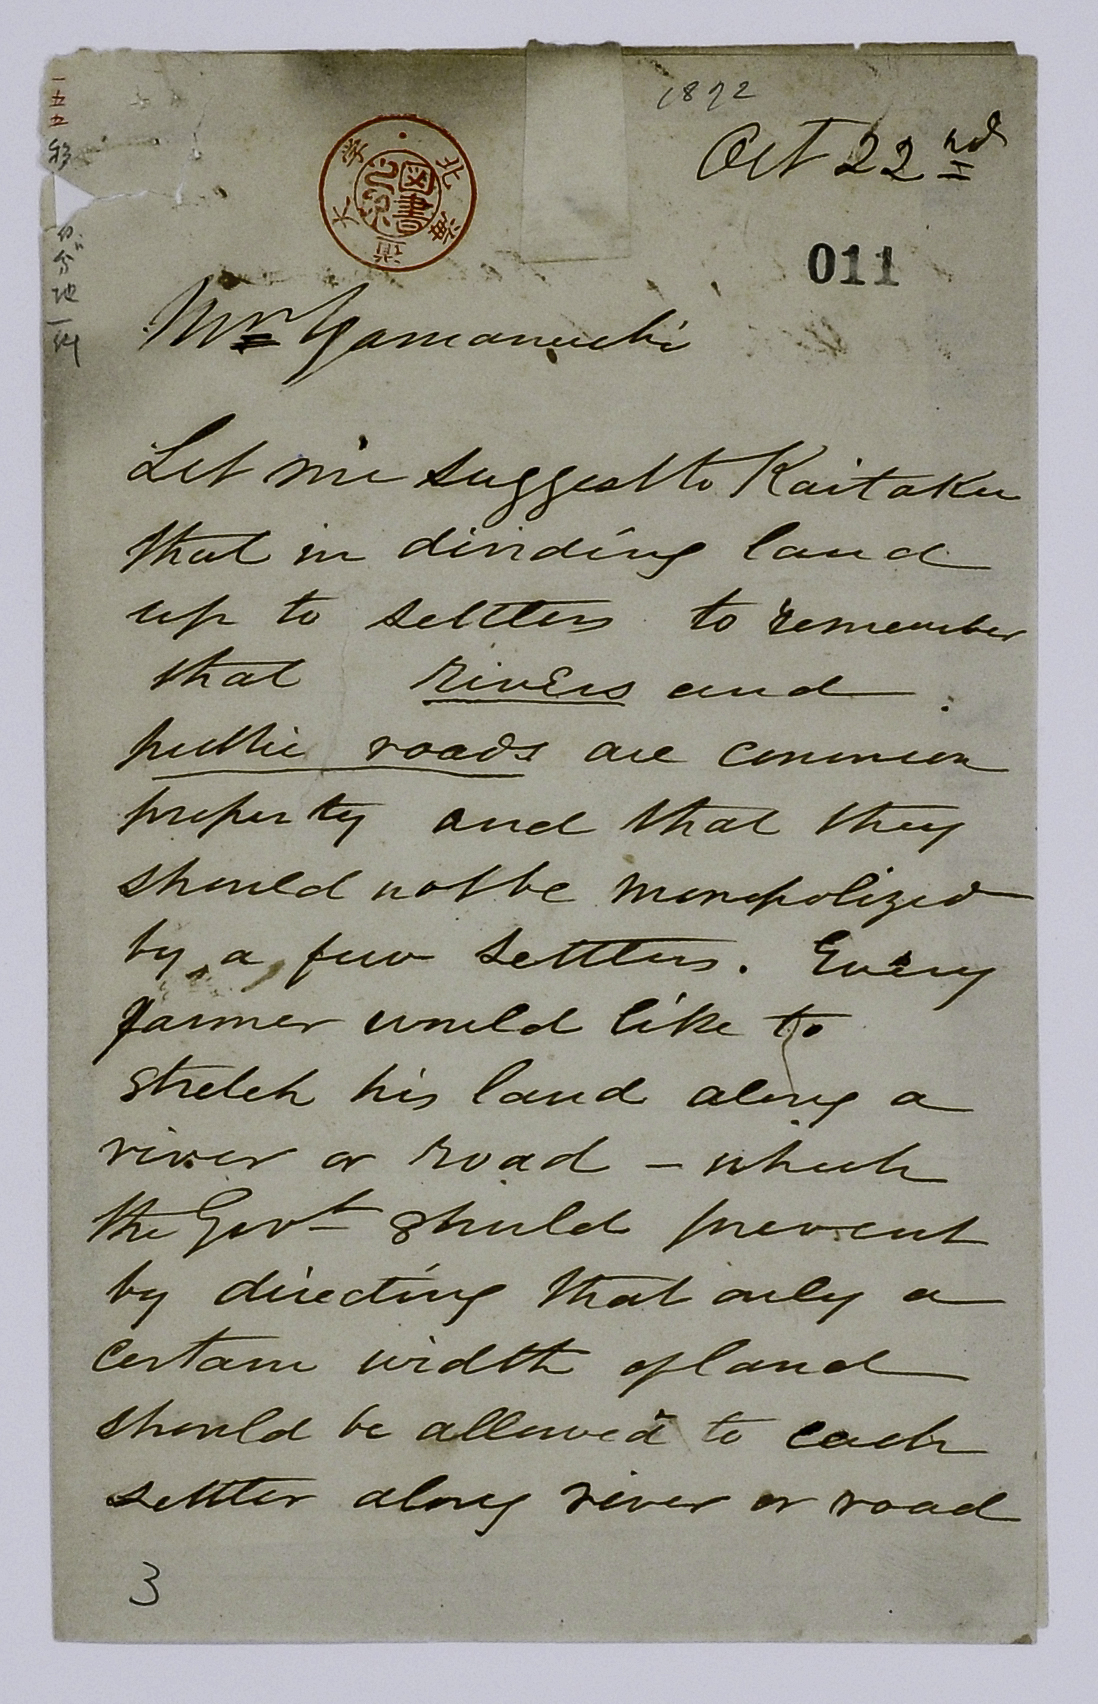 1872
Oct 22nd
北海道大学
図書
011
Mr Yamanuchi
Let me suggest to Kaitaku
that in dividing land
up to settlers to remember
that rivers and
public roads are common
property and that they
should not be monopolized
by a few settlers. Every
farmer would like to
stretch his land along a
river or road – which
the Govt should prevent
by directing that only a
certain width of land
should be allowed to each
settler along river or road
3